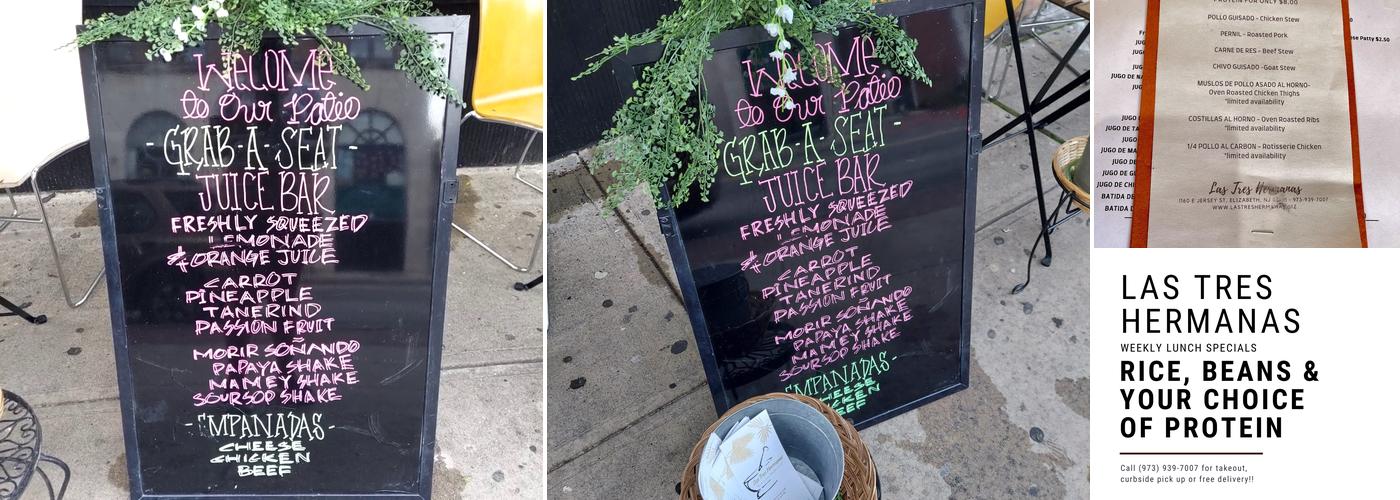 WELOME
to Our Patio
- GRAB-A-SEAT -
JUICE BAR
FRESHLY SQUEEZED
LEMONADE
& ORANGE JUICE
CARROT
PINEAPPLE
TANERIND
PASSION FRUIT
MORIR SOÑANDO
PAPAYA SHAKE
MAMEY SHAKE
SOURSOP SHAKE
- EMPANADAS -
CHEESE
CHICKEN
BEEF
WELOME
to Our Patio
GRAB-A-SEAT -
JUICE BAR
FRESHLY SQUEEZED
LEMONADE
& ORANGE JUICE
CARROT
PINEAPPLE
TANERIND
PASSION FRUIT
MORIR SOÑANDO
PAPAYA SHAKE
MAMEY SHAKE
SOURSOP SHAKE
EMPANADAS-
PROTEIN FOR ONLY $8.00
POLLO GUISADO - Chicken Stew
PERNIL - Roasted Pork
CARNE DE RES - Beef Stew
CHIVO GUISADO -Goat Stew
MUSLOS DE POLLO ASADO AL HORNO-
Oven Roasted Chicken Thighs
*limited availability
COSTILLAS AL HORNO - Oven Roasted Ribs
*limited availability
1/4 POLLO AL CARBON - Rotisserie Chicken
*limited availability
Las Tres Hermanas
1160 E JERSEY ST, ELIZABETH, NJ - 973-939-7007
JUGO DE
JUGO
BATIDA
Patty $2.50
LAS TRES
HERMANAS
WEEKLY LUNCH SPECIALS
RICE, BEANS &
YOUR CHOICE
OF PROTEIN
Call (973) 939-7007 for takeout,
curbside pick up or free delivery!!